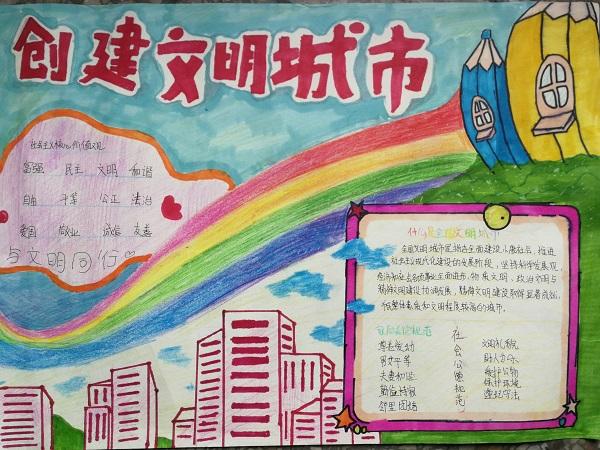 创建文明城市
社会主义核心价值观
富强 民主 文明 和谐
自由 平等 公正 法治
爱国 敬业 诚信 友善
与文明同行
什么是全国文明城市
全国文明城市是指在全面建设小康社会，推进
社会主义现代化建设的发展阶段，坚持科学发展观，
经济和社会各项事业全面进步，物质文明、政治文明与
精神文明建设协调发展，精神文明建设取得显著成就，
市民整体素质和文明程度较高的城市。
家庭美德规范
尊老爱幼
男女平等
夫妻和睦
勤俭持家
邻里团结
社会公德规范
文明礼貌
助人为乐
爱护公物
保护环境
遵纪守法